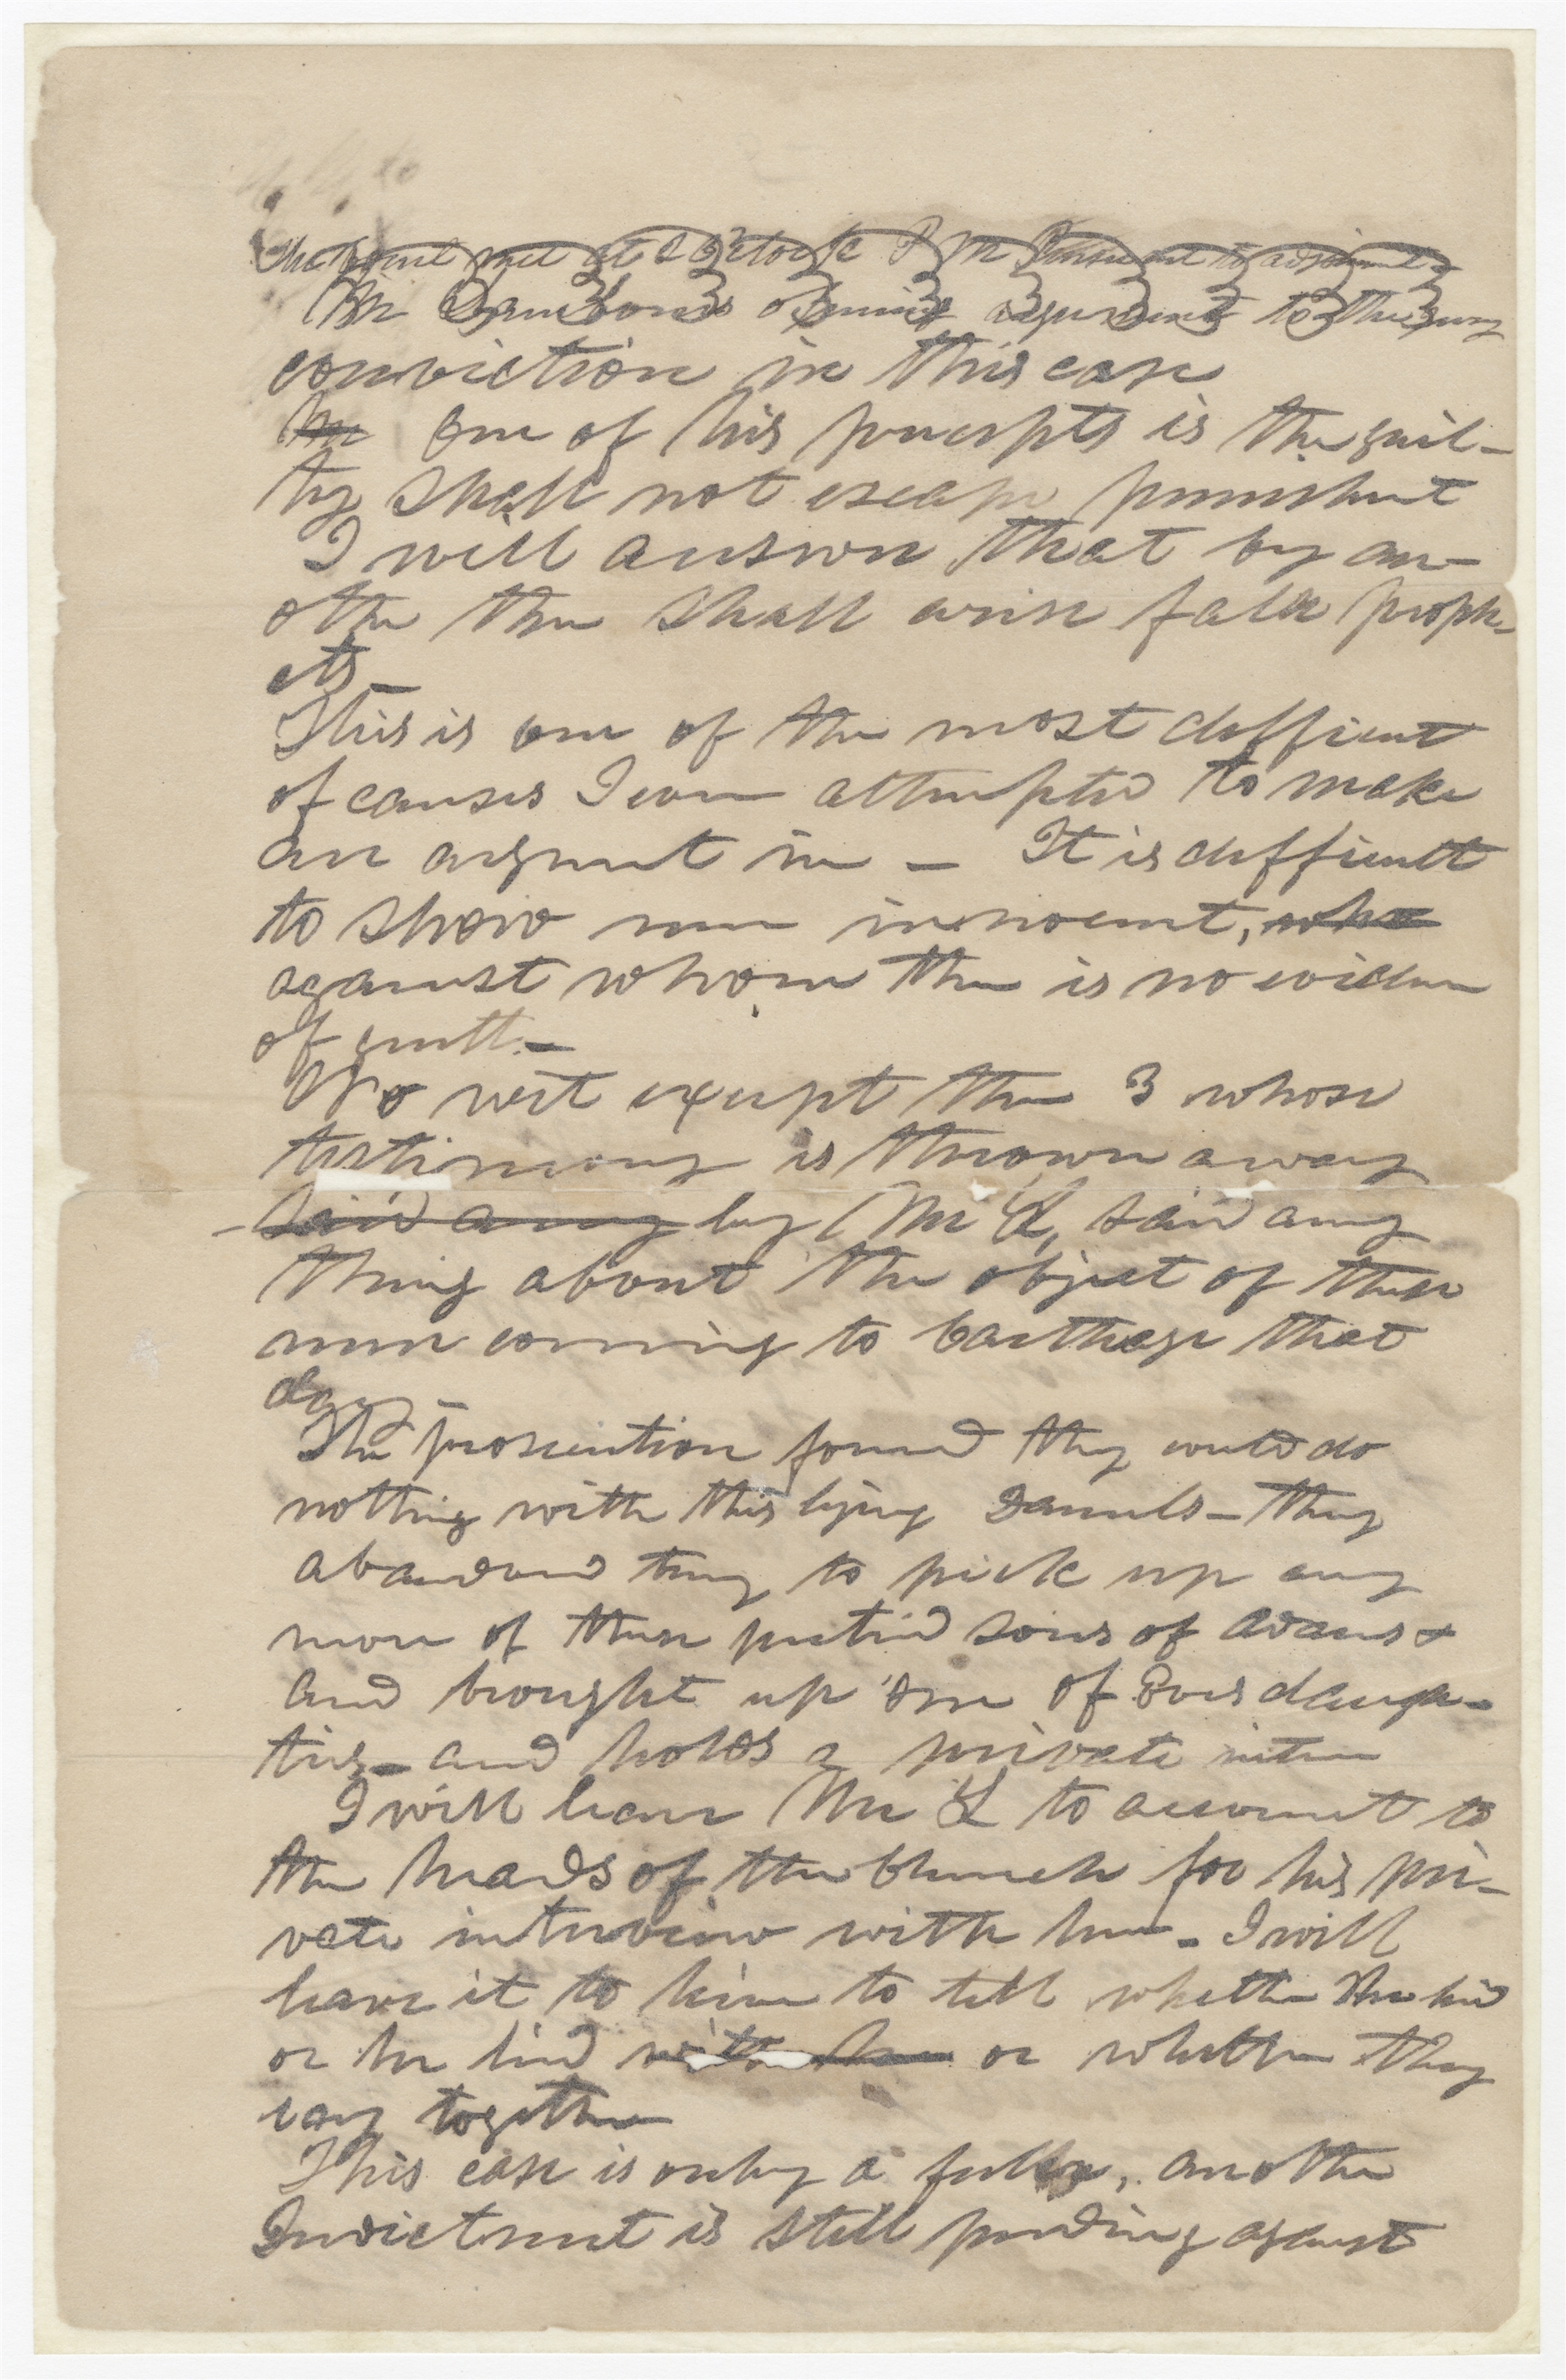 The Court met at 2 O'clock P M Pursuant to adjournment
Mr opening argument to the jury
conviction in this case
In One of his precepts is the guil-
ty shall not escape punishmt
I will answer that by an-
other ther shall arise false proph-
ets
This is one of the most difficult
of causes I ever attempted to make
an argumt in — It is difficult
to show men innocent, who
against whom ther is no eviden
of guilt —
No wit except the 3 whose
testimony is thrown away
said any by Mr L, said any
thing about the object of these
men coming to Carthage that
day —
The prosecution found they could do
nothing with this lying Daniels — they
abandond trying to pick up any
more of these putrid sons of Adams &
and brought up one of Eves daugh-
ters — and holds a private inter
I will leave Mr L to account to
the heads of the Church for his pri-
vate interview with her — I will
leave it to him to tell whether she lied
or he lied with her or whether they
together
This case is only a feeler, another
Indictmnt is still pending against